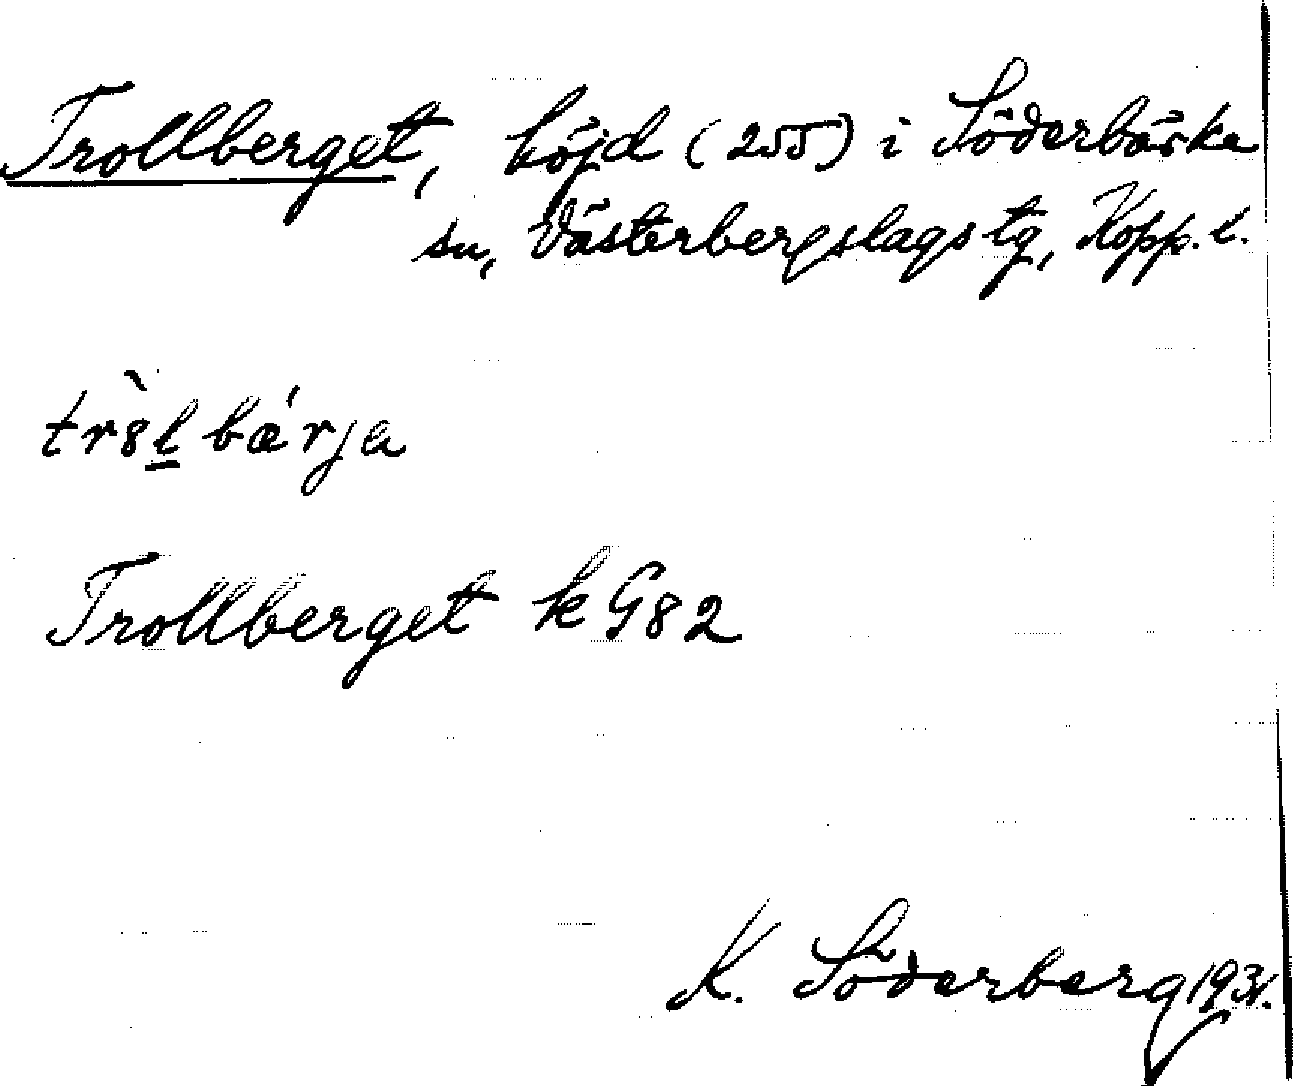 Trollberget, höjd (255) i Söderbärke
sn, Västerbergslags tg, Kopp. l.
tr8̀l̲ bǽrja
Trollberget k G82
K. Söderberg 1931.